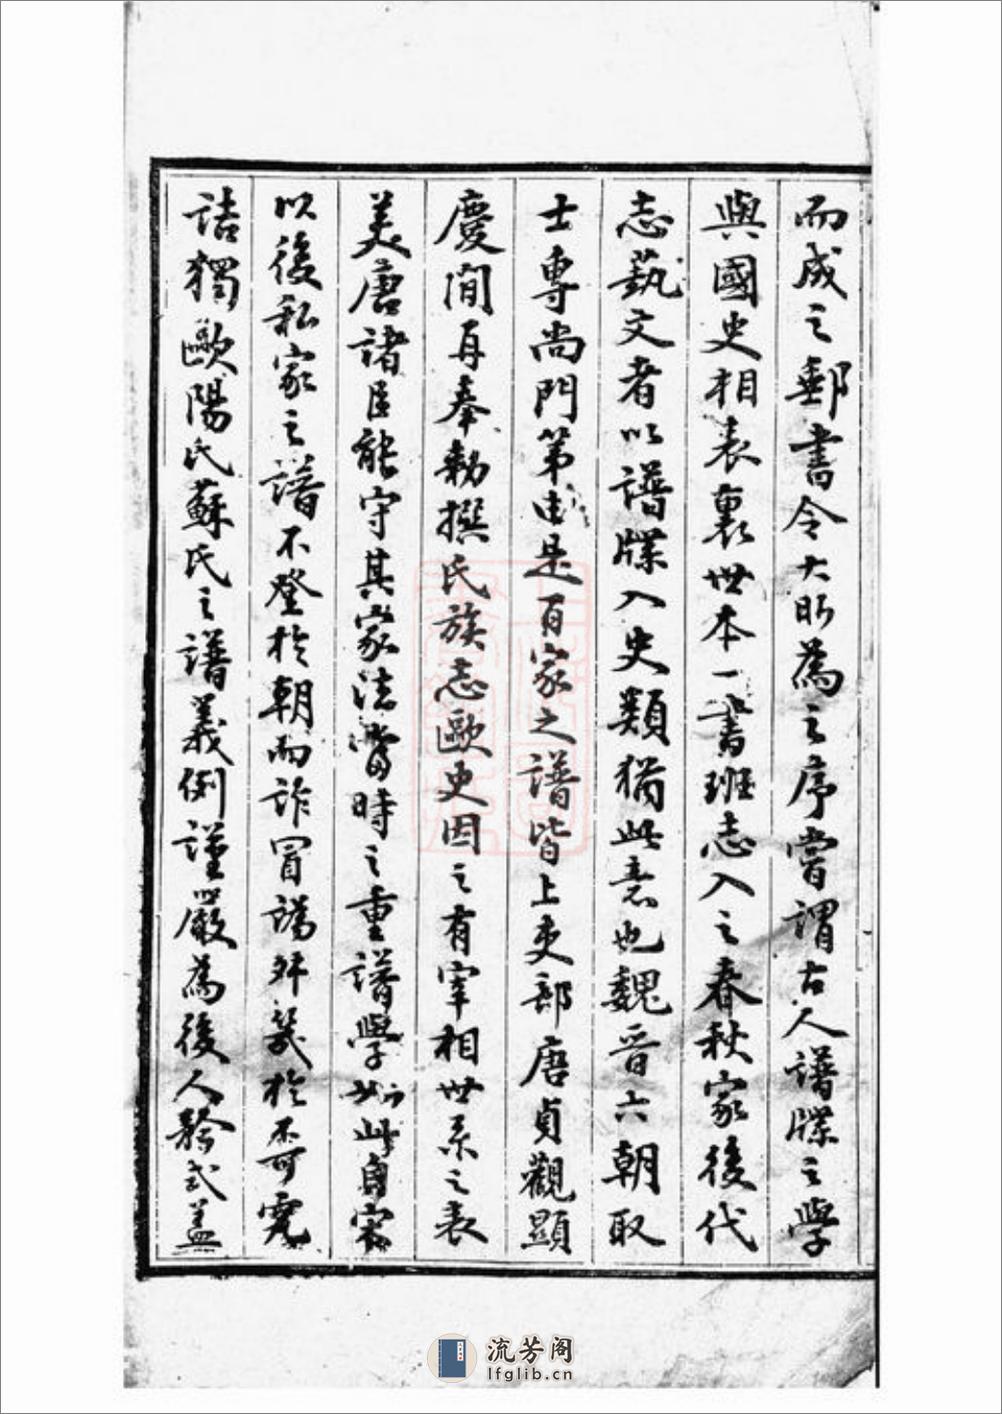 而成之郵書令大昕為之序嘗謂古人譜牒之學
與國史相表裏世本一書班志入之春秋家後代
志藝文者以譜牒入史類猶此意也魏晉六朝取
士專尚門第由是百家之譜皆上吏部唐貞觀顯
慶間再奉勅撰氏族志歐史因之有宰相世系之表
美唐諸臣能守其家法當時之重譜學如此自宋
以後私家之譜不登於朝而詐冒譌舛幾於不可究
詰獨歐陽氏蘇氏之譜義例謹嚴為後人矜式蓋
流芳阁
lfglib.cn